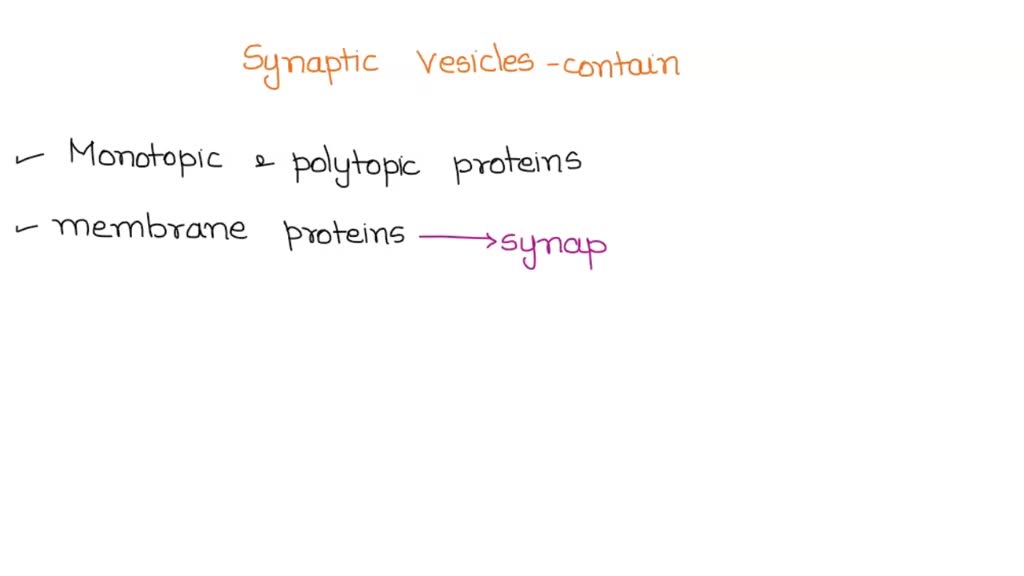 Synaptic vesicles - contain
✓ Monotopic & polytopic proteins
✓ membrane proteins → synap